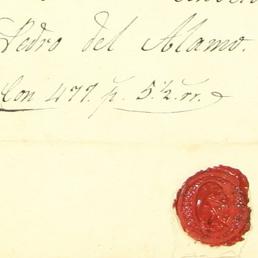 Pedro del Alamo.
Con 477. p. 5½ rr.